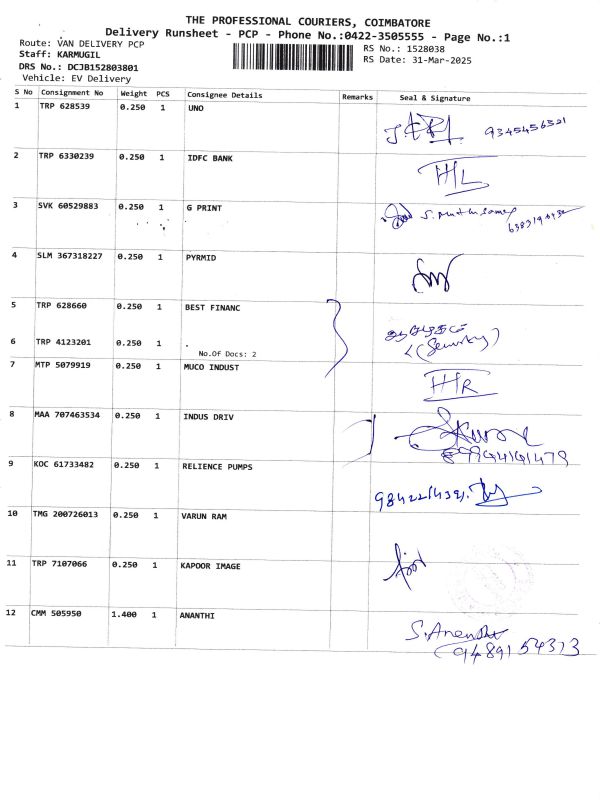 THE PROFESSIONAL COURIERS, COIMBATORE
Delivery Runsheet - PCP - Phone No.:0422-3505555 - Page No.:1
Route: VAN DELIVERY PCP
Staff: KARMUGIL
DRS No.: DCJB152803801
Vehicle: EV Delivery
RS No.: 1528038
RS Date: 31-Mar-2025
S No Consignment No Weight PCS Consignee Details Remarks Seal & Signature
1 TRP 628539 0.250 1 UNO
2 TRP 6330239 0.250 1 IDFC BANK
3 SVK 60529883 0.250 1 G PRINT
4 SLM 367318227 0.250 1 PYRMID
5 TRP 628660 0.250 1 BEST FINANC
6 TRP 4123201 0.250 1 .
(Security)
No.Of Docs: 2
7 MTP 5079919 0.250 1 MUCO INDUST
8 MAA 707463534 0.250 1 INDUS DRIV
9 KOC 61733482 0.250 1 RELIENCE PUMPS
10 TMG 200726013 0.250 1 VARUN RAM
11 TRP 7107066 0.250 1 KAPOOR IMAGE
12 CMM 505950 1.400 1 ANANTHI